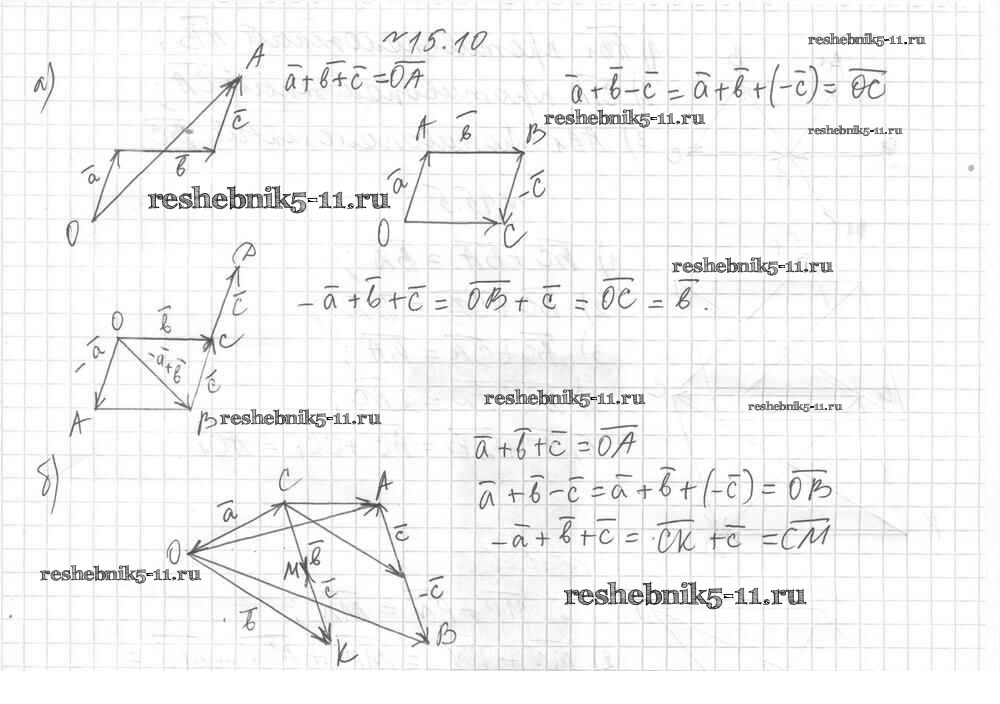 №15.10
reshebnik5-11.ru
а)
A
a̅+b̅+c̅=O̅A̅
a̅+b̅-c̅ = a̅+b̅+(-c̅)= O̅C̅
c̅
a̅
b̅
O
reshebnik5-11.ru
reshebnik5-11.ru
reshebnik5-11.ru
A
b̅
B
a̅
-c̅
O
C
reshebnik5-11.ru
- a̅+b̅+c̅ = O̅B̅+ c̅ = O̅C̅ = b̅.
c̅
O
b̅
C
-a̅
-a̅+b̅
c̅
A
B
reshebnik5-11.ru
reshebnik5-11.ru
reshebnik5-11.ru
б)
a̅+b̅+c̅ =O̅A̅
a̅+b̅-c̅ =a̅+b̅+(-c̅)= O̅B̅
-a̅+b̅+c̅ = C̅K̅ +c̅ =C̅M̅
C
A
a̅
c̅
O
b̅
M
c̅
-c̅
b̅
B
K
reshebnik5-11.ru
reshebnik5-11.ru